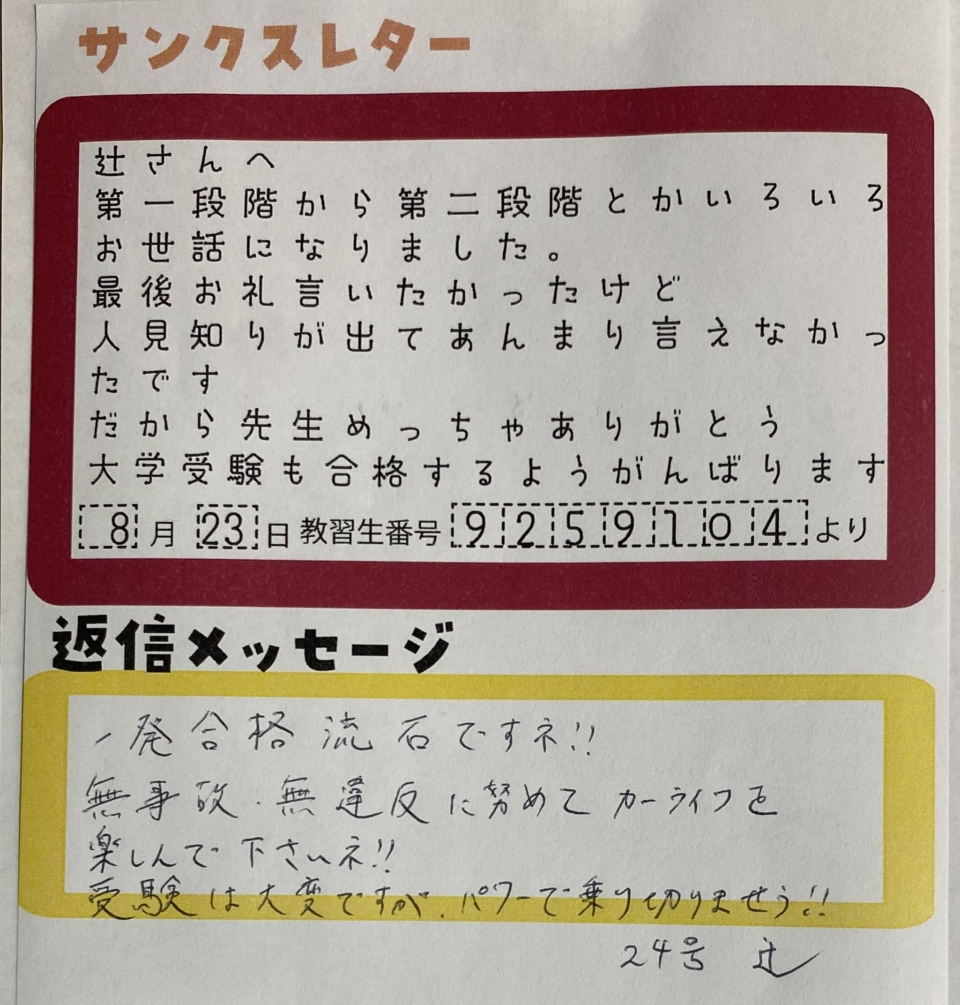 サンクスレター
辻さんへ
第一段階から第二段階とかいろいろ
お世話になりました。
最後お礼言いたかったけど
人見知りが出てあんまり言えなかっ
たです
だから先生めっちゃありがとう
大学受験も合格するようがんばります
8月23日教習生番号9259104より
返信メッセージ
一発合格流石ですネ!!
無事故・無違反に努めてカーライフを
楽しんで下さいネ!!
受験は大変ですが、パワーで乗り切りませう!!
24号 辻